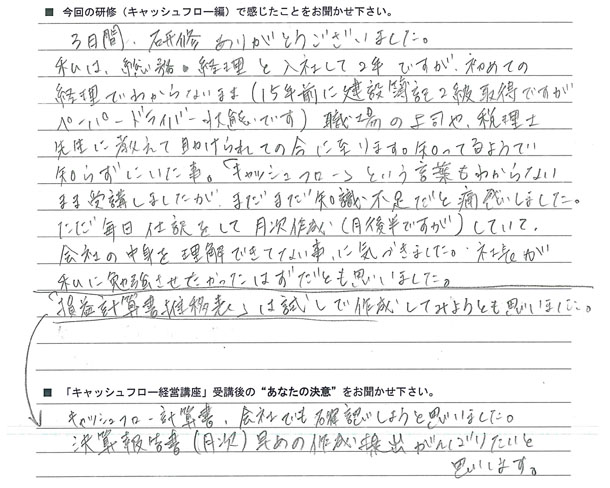 ■ 今回の研修（キャッシュフロー編）で感じたことをお聞かせ下さい。
3日間、研修ありがとうございました。
私は、総務・経理と入社して2年ですが、初めての
経理でわからないまま（15年前に建設簿記2級取得ですが
ペーパードライバー状態です）職場の上司や、税理士
先生に教えて助けられての今に至ります。知ってるようで
知らずにいた事。「キャッシュフロー」という言葉もわからない
まま受講しましたが、まだまだ知識不足だと痛感しました。
ただ毎日仕訳をして月次作成（月後半ですが）していて、
会社の中身を理解できてない事に気がきました。社長が
私に勉強させたかったはずだとも思いました。
「損益計算書推移表」は試しで作成してみようとも思いました。
■ 「キャッシュフロー経営講座」受講後の“あなたの決意”をお聞かせ下さい。
キャッシュフロー計算書、会社でも確認しようと思いました。
決算報告書（月次）早めの作成提出がんばりたいと
思います。